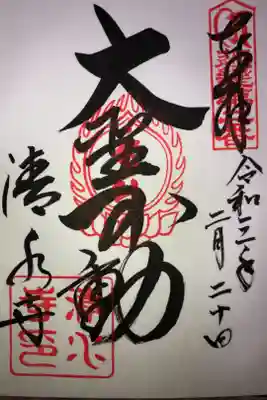 奉拝
令和三年
二月二十日
大聖不動
清水寺